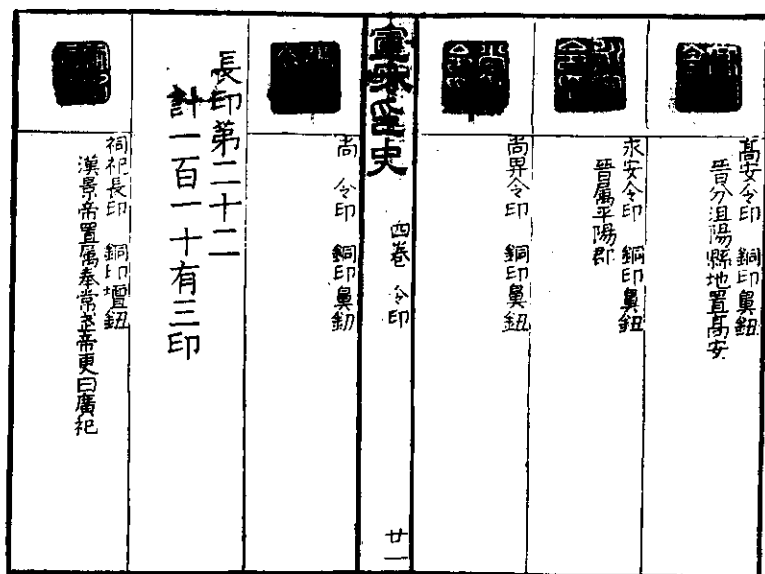 高安令印　銅印鼻鈕
晉分沮陽縣地置高安
永安令印　銅印鼻鈕
晉属平陽郡
尚昇令印　銅印鼻鈕
宣和印史
四卷　令印
廿一
尚　令印　銅印鼻鈕
長印第二十二
計一百一十有三印
祠祀長印　銅印壇鈕
漢景帝置属奉常武帝更曰廣祀